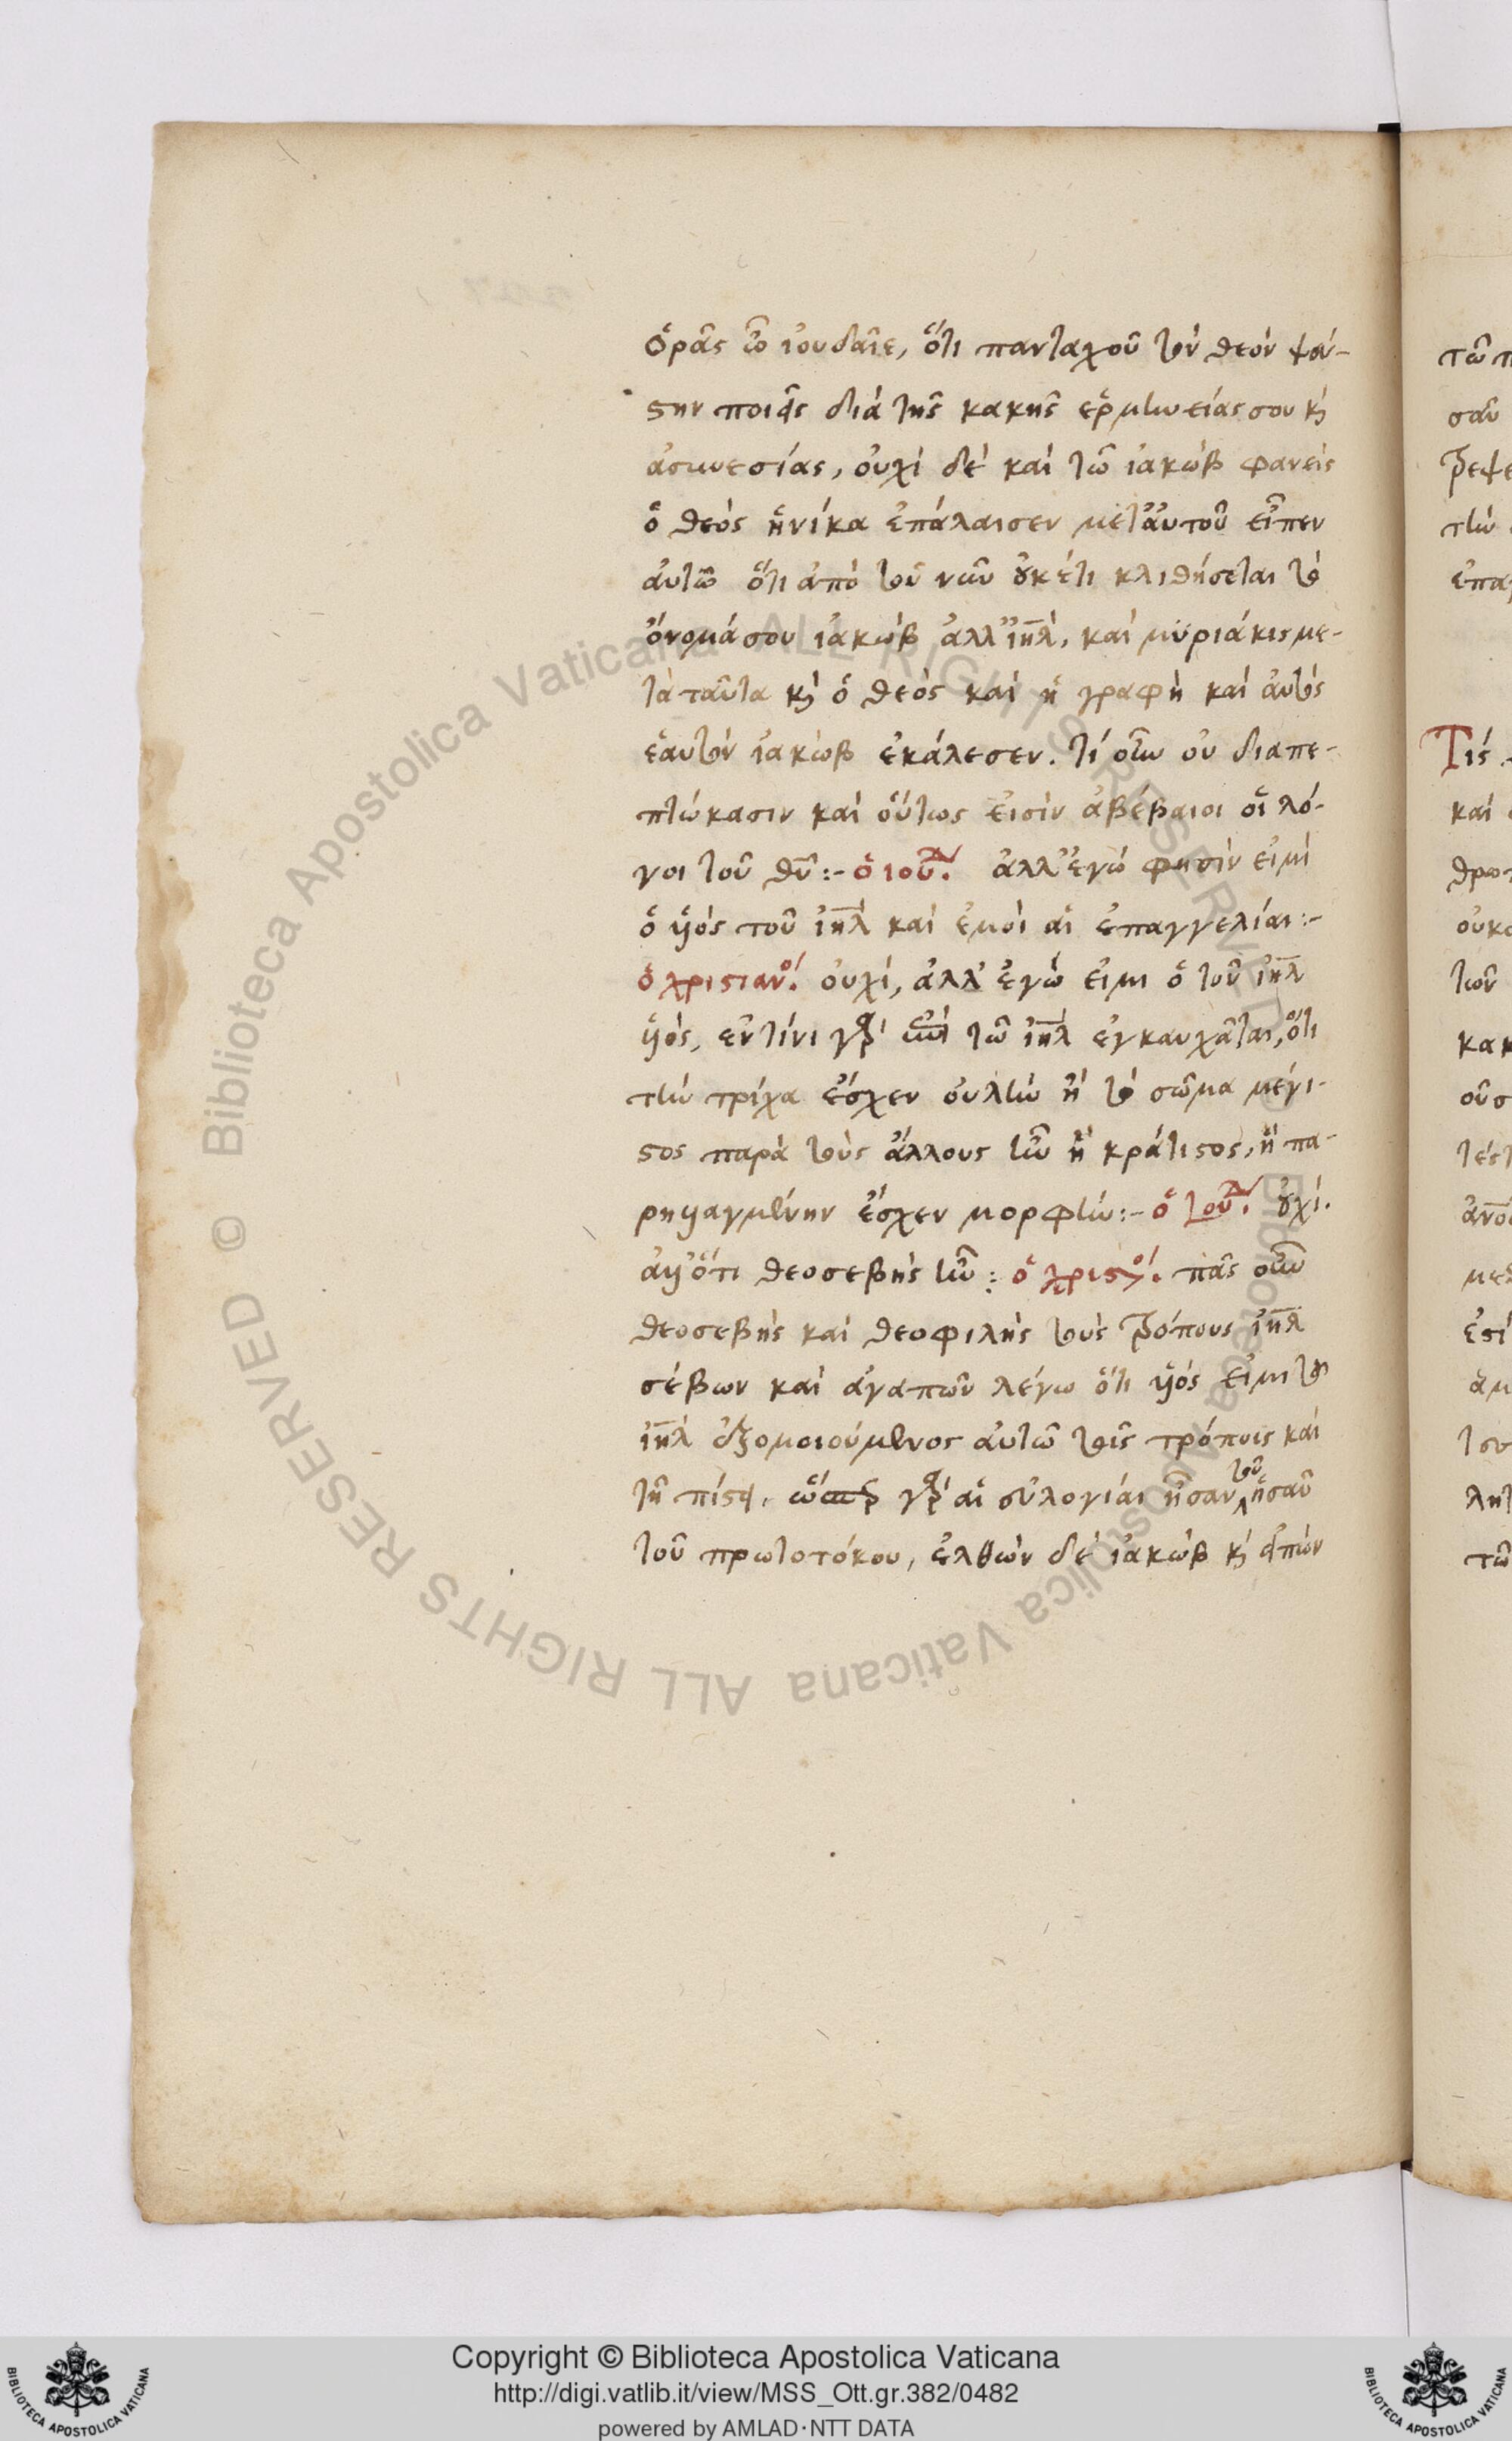 ὁρᾶς ὦ ἰουδαῖε, ὅτι πανταχοῦ τὸν θεὸν ψεύ-
στην ποιεῖς διὰ τῆς κακῆς ἑρμηνείας σου κὶ
ἀσυνεσίας, οὐχὶ δὲ καὶ τῶ ἰακὼβ φανεὶς
ὁ θεὸς ἡνίκα ἐπάλαισεν μετ' αὐτοῦ εἶπεν
αὐτῶ ὅτι ἀπὸ τοῦ νῦν οὐκέτι κλιθήσεται τὸ
ὄνομά σου ἰακὼβ ἀλλ' ἰηλ, καὶ μυριάκις με-
τὰ ταῦτα κὶ ὁ θεὸς καὶ ἡ γραφὴ καὶ αὐτὸς
ἑαυτὸν ἰακὼβ ἐκάλεσεν. τί οὖν οὐ διαπε-
πτώκασιν καὶ οὕτως εἰσὶν ἀβέβαιοι οἱ λό-
γοι τοῦ θυ:- ὁ ιουδ. ἀλλ' ἐγὼ φησὶν εἰμὶ
ὁ υἱὸς τοῦ ἰηλ καὶ ἐμοὶ αἱ ἐπαγγελίαι:-
ὁ χριστιανο. οὐχὶ, ἀλλ' ἐγὼ εἰμι ὁ τοῦ ἰηλ
υἱὸς, ἐν τίνι γὰρ τῶ ἰηλ ἐγκαυχᾶται, ὅτι
τὴν τρίχα ἔσχεν οὐλὴν ἢ τὸ σῶμα μέγι-
στος παρὰ τοὺς ἄλλους ἦν ἢ κράτιστος, ἢ πα-
ρηλλαγμένην ἔσχεν μορφὴν:- ὁ ἰουδ. οὐχί.
ἀλλ' ὅτι θεοσεβὴς ἦν: ὁ χριστο. πᾶς οὖν
θεοσεβὴς καὶ θεοφιλὴς τοὺς τρόπους ἰηλ
σέβων καὶ ἀγαπῶν λέγω ὅτι υἱός εἰμι τοῦ
ἰηλ ἐξομοιούμενος αὐτῶ τοῖς τρόποις καὶ
τῆ πίστει. ὥσπερ γὰρ αἱ εὐλογίαι ἦσαν τοῦ ἠσαῦ
τοῦ πρωτοτόκου, ἐλθὼν δὲ ἰακὼβ κὶ εἰπὼν